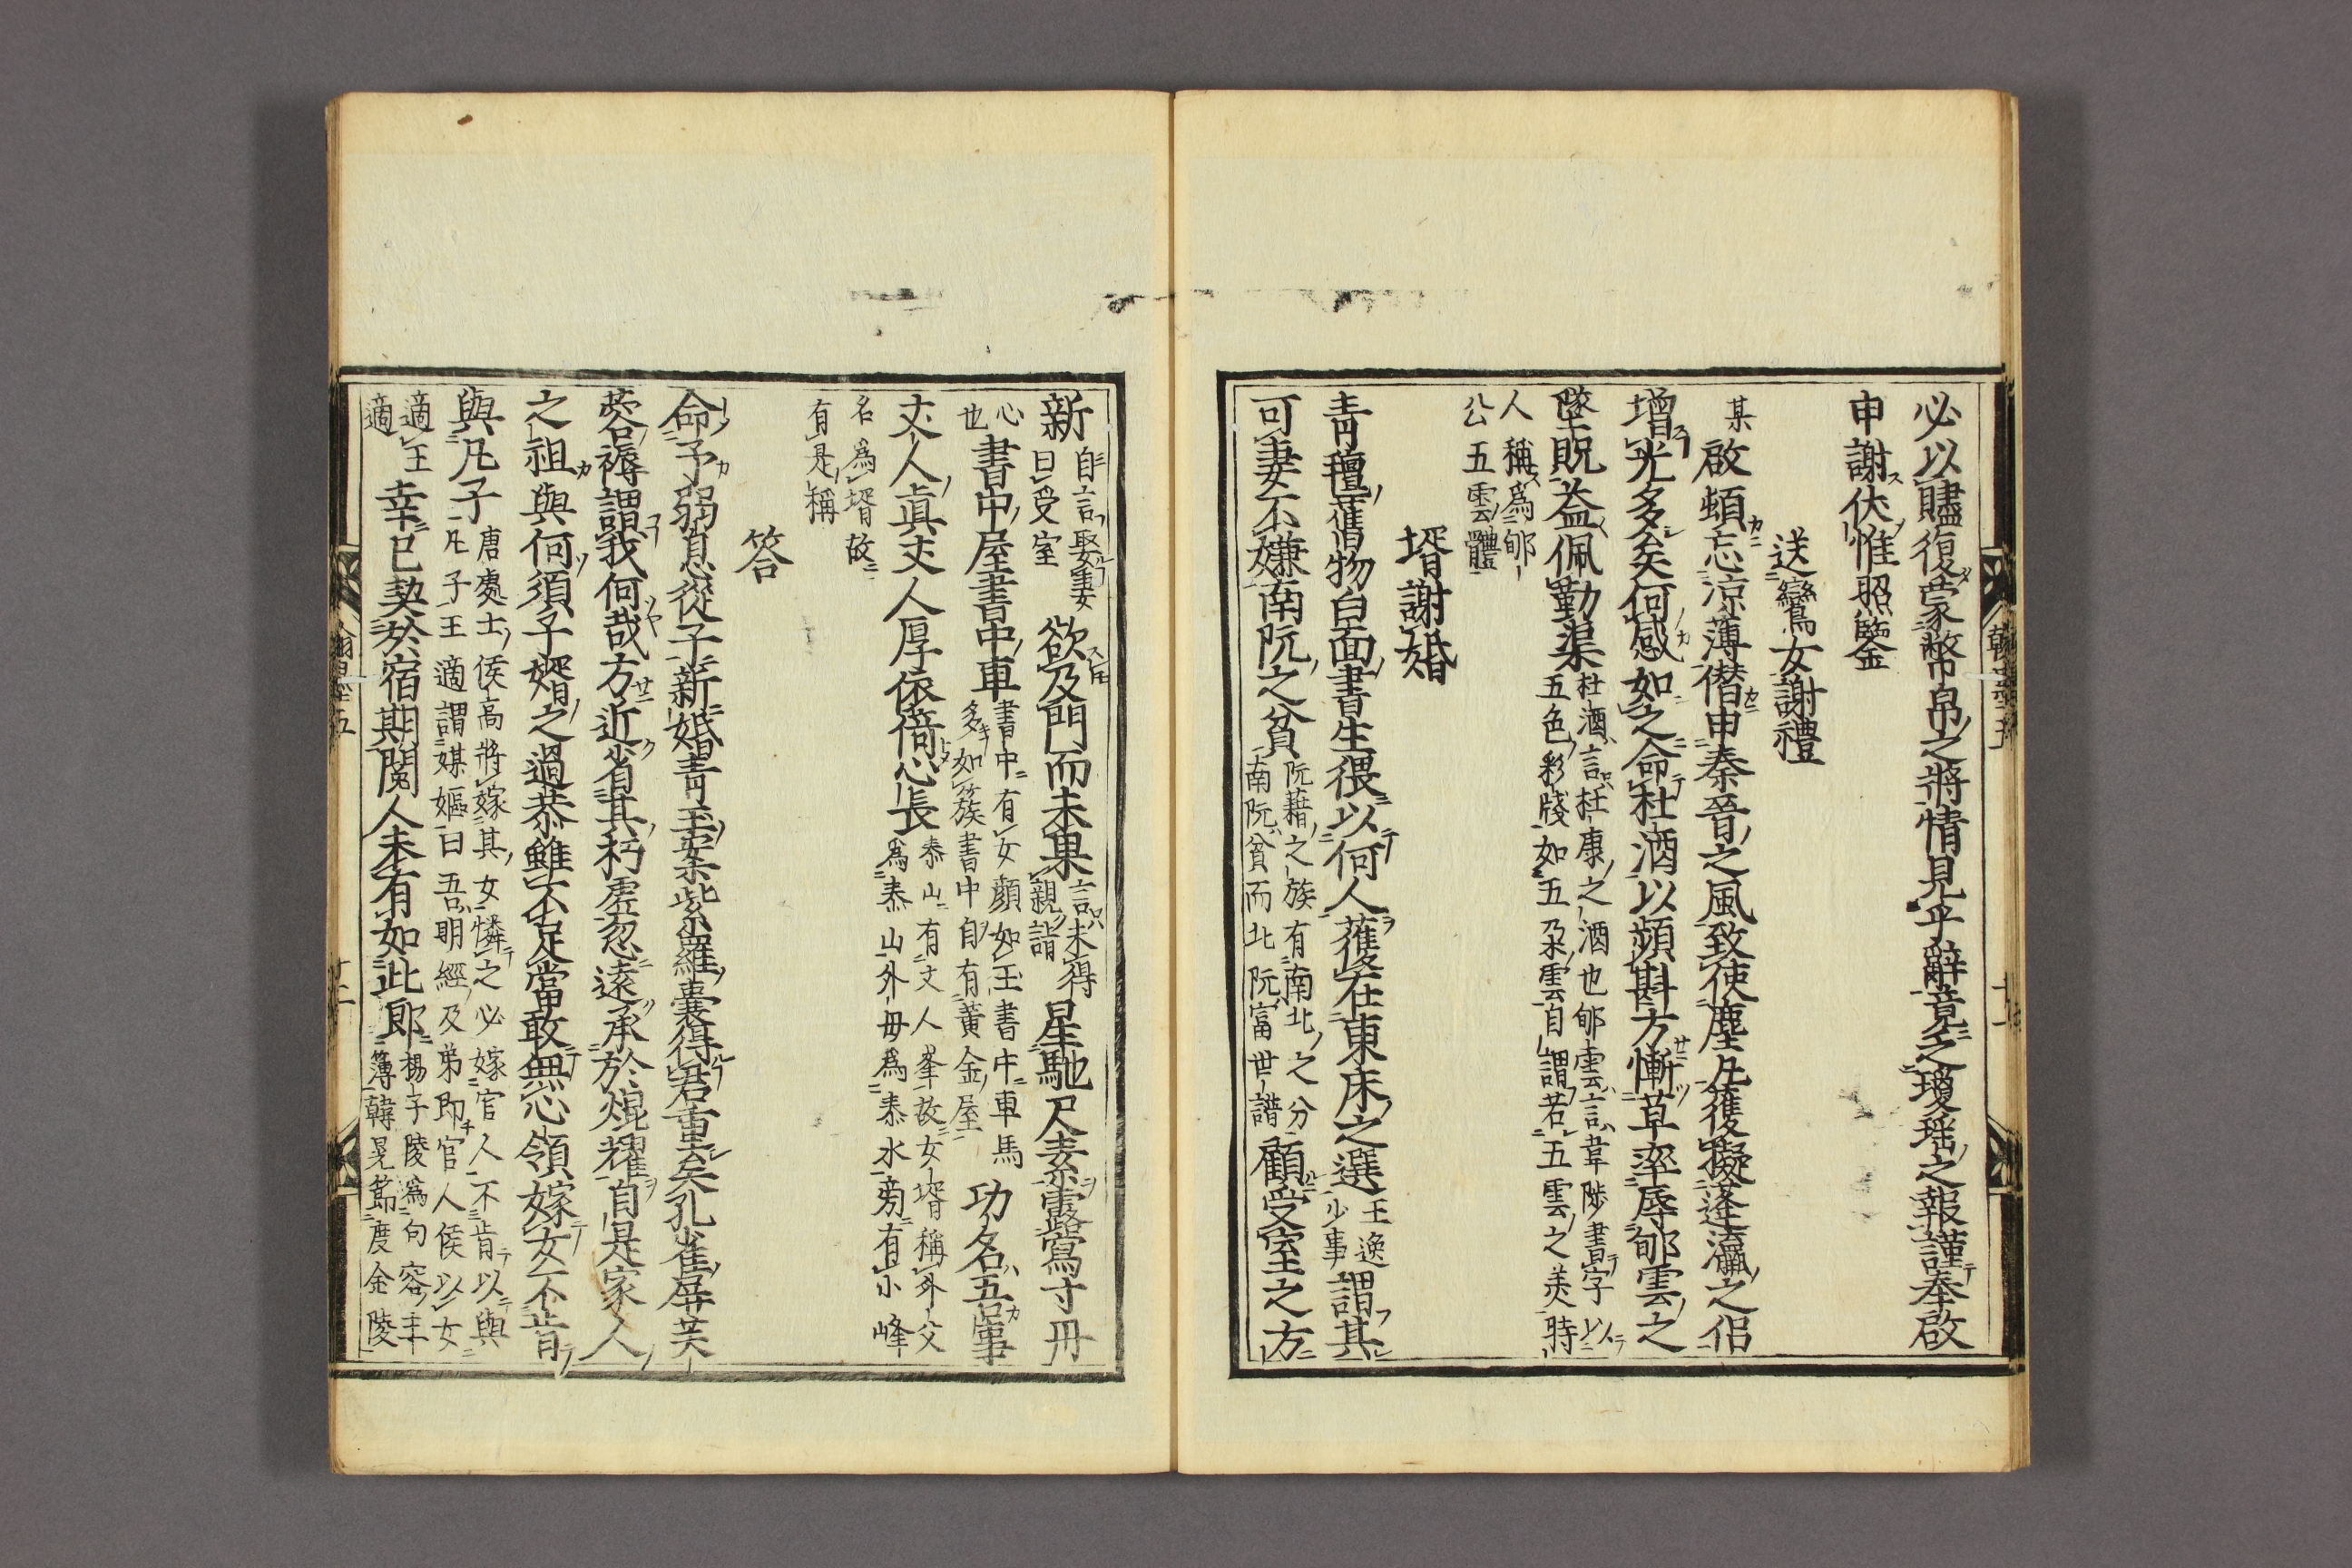 必以贐復蒙幣帛之將情見乎辭竟乏瓊瑤之報謹奉啟
申謝伏惟照鑒
送鸞女謝禮
某啟頓忘涼薄僣申秦晉之風致使塵凡獲擬蓬瀛之侶
增光多矣何感如之命杜酒以頻斟方慚草率辱郇雲之
墜貺益佩勤渠
杜酒言杜康之酒也郇雲言韋陟書字以
五色彩牋如五朵雲自謂若五雲之美時
人稱爲郇
公五雲體
壻謝婚
青氊舊物白面書生猥以何人獲在東床之選
王逸
少事
謂其
可妻不嫌南阮之貧
阮藉之族有南北之分
南阮貧而北阮富世譜
顧受室之方
新
自言娶妻
曰受室
欲及門而未果
言未得
親詣
星馳尺素露寫寸冊
心
也
書中屋書中車
書中有女顏如玉書中車馬
多如簇書中自有黃金屋
功名吾事
丈人眞丈人厚依倚心長
泰山有丈人峯故女壻稱外父
爲泰山外母爲泰水旁有小峰
名爲壻故
有是稱
答
命予弱息從子新婚青玉案紫羅囊得君重矣孔雀屏芙
蓉褥謂我何哉方近省其朽虛忽遠承於焜耀自是家人
之祖與何須子壻之過恭雖不足當敢無心領嫁女不肯
與凡子
唐處士侯高將嫁其女憐之必嫁官人不肯以與
凡子王適謂媒嫗曰吾明經及弟即官人侯以女
適王
適
幸已契於宿期閱人未有如此郎
楊子陵爲句容主
簿韓晃節度金陵
翰墨五
十二